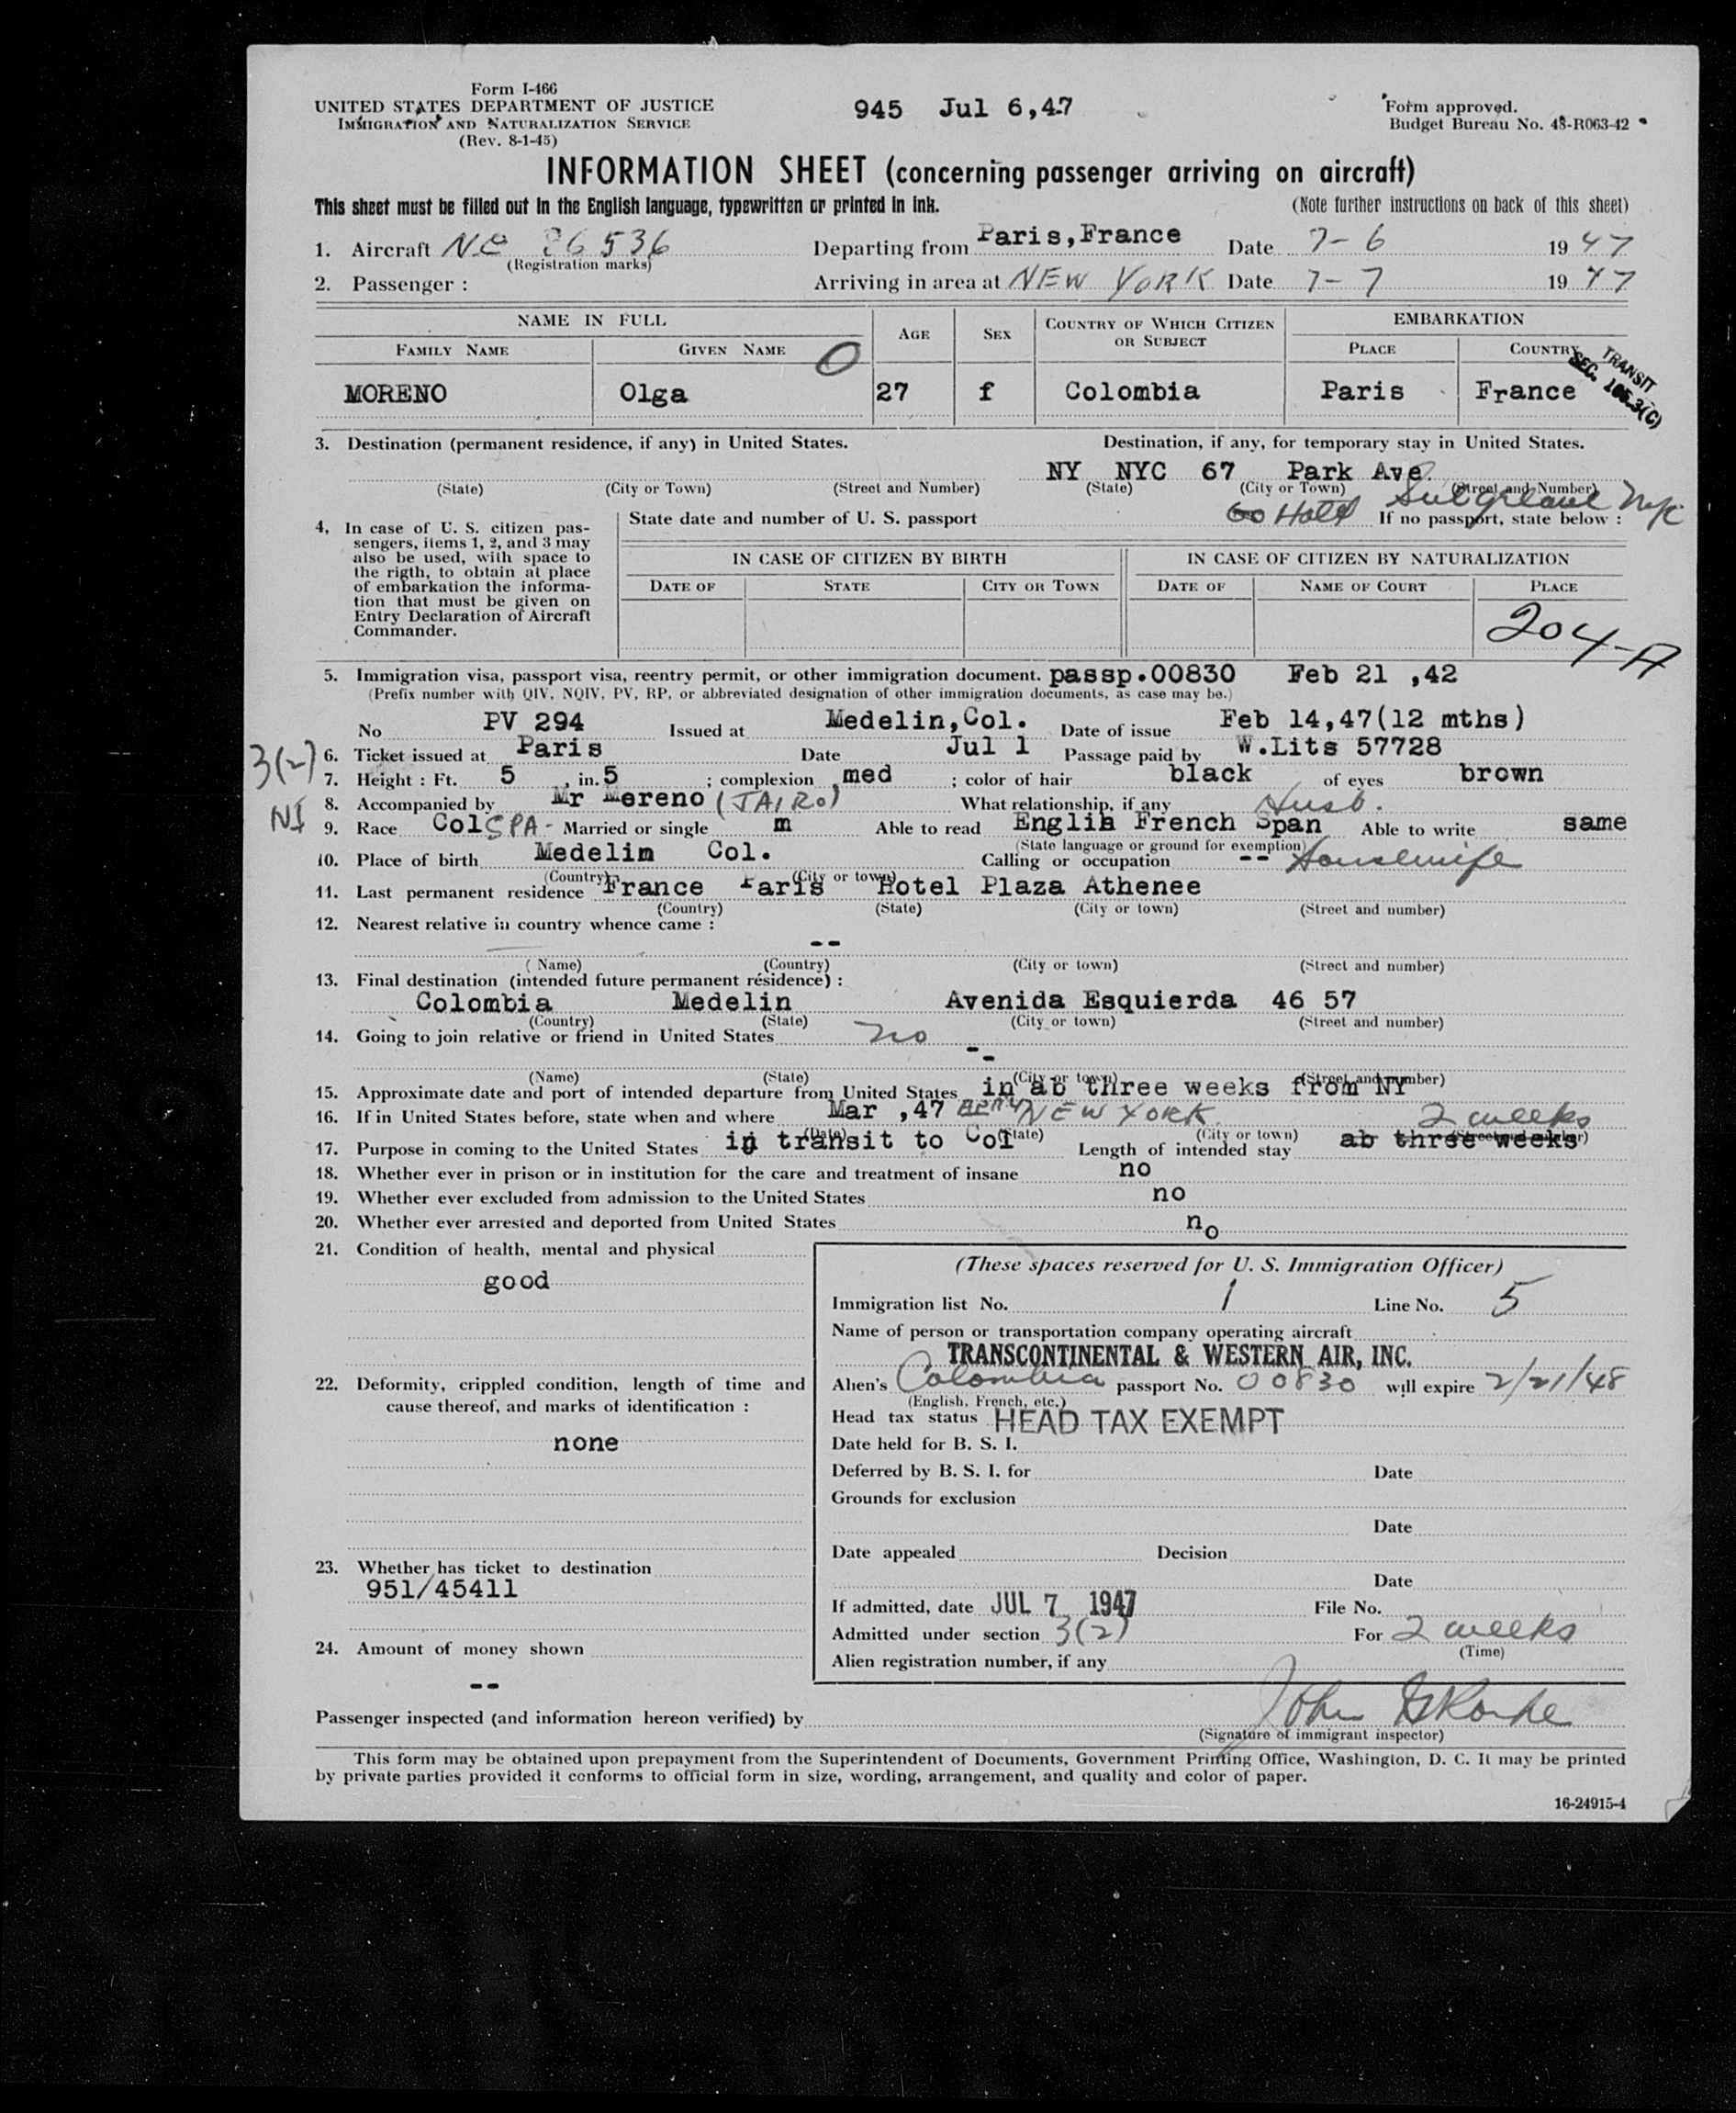 Form I-466
UNITED STATES DEPARTMENT OF JUSTICE
IMMIGRATION AND NATURALIZATION SERVICE
(Rev. 8-1-45)
945 Jul 6,47
Form approved.
Budget Bureau No. 43-R063-42
INFORMATION SHEET (concerning passenger arriving on aircraft)
This sheet must be filled out in the English language, typewritten or printed in ink.
(Note further instructions on back of this sheet)
1. Aircraft NC 86536 Departing from Paris,France Date 7-6 1947
(Registration marks)
2. Passenger : Arriving in area at NEW YORK Date 7-7 1947
NAME IN FULL AGE SEX COUNTRY OF WHICH CITIZEN OR SUBJECT EMBARKATION
FAMILY NAME GIVEN NAME O PLACE COUNTRY
TRANSIT
SEC. 105.3(C)
MORENO Olga 27 f Colombia Paris France
3. Destination (permanent residence, if any) in United States. Destination, if any, for temporary stay in United States.
NY NYC 67 Park Ave.
(State) (City or Town) (Street and Number) (State) (City or Town) (Street and Number)
NYC
4, In case of U. S. citizen pas-
sengers, items 1, 2, and 3 may
also be used, with space to
the rigth, to obtain at place
of embarkation the informa-
tion that must be given on
Entry Declaration of Aircraft
Commander.
State date and number of U. S. passport If no passport, state below :
IN CASE OF CITIZEN BY BIRTH IN CASE OF CITIZEN BY NATURALIZATION
DATE OF STATE CITY OR TOWN DATE OF NAME OF COURT PLACE
204-A
5. Immigration visa, passport visa, reentry permit, or other immigration document. passp.00830 Feb 21 ,42
(Prefix number with QIV, NQIV, PV, RP, or abbreviated designation of other immigration documents, as case may be.)
No PV 294 Issued at Medelin,Col. Date of issue Feb 14,47(12 mths)
3(2)
6. Ticket issued at Paris Date Jul 1 Passage paid by W.Lits 57728
7. Height : Ft. 5 , in. 5 ; complexion med ; color of hair black of eyes brown
8. Accompanied by Mr Moreno (JAIRO) What relationship, if any Husb.
NI
9. Race Col SPA- Married or single m Able to read Englih French Span Able to write same
(State language or ground for exemption)
10. Place of birth Medelin Col. Calling or occupation -- Housewife
(Country) (City or town)
11. Last permanent residence France Paris Hotel Plaza Athenee
(Country) (State) (City or town) (Street and number)
12. Nearest relative in country whence came :
--
(Name) (Country) (City or town) (Street and number)
13. Final destination (intended future permanent résidence) :
Colombia Medelin Avenida Esquierda 46 57
(Country) (State) (City or town) (Street and number)
14. Going to join relative or friend in United States no
--
(Name) (State) (City or town) (Street and number)
15. Approximate date and port of intended departure from United States in ab three weeks from NY
16. If in United States before, state when and where Mar ,47 NEW YORK 2 weeks
(Date) (State) (City or town) (Street and number)
17. Purpose in coming to the United States in transit to Col Length of intended stay ab three weeks
18. Whether ever in prison or in institution for the care and treatment of insane no
19. Whether ever excluded from admission to the United States no
20. Whether ever arrested and deported from United States no
21. Condition of health, mental and physical
good
22. Deformity, crippled condition, length of time and
cause thereof, and marks of identification :
none
23. Whether has ticket to destination
951/45411
24. Amount of money shown
--
(These spaces reserved for U. S. Immigration Officer)
Immigration list No. 1 Line No. 5
Name of person or transportation company operating aircraft
TRANSCONTINENTAL & WESTERN AIR, INC.
Alien's Colombia passport No. 00830 will expire 2/21/48
(English, French, etc.)
Head tax status HEAD TAX EXEMPT
Date held for B. S. I.
Deferred by B. S. I. for Date
Grounds for exclusion
Date
Date appealed Decision
Date
If admitted, date JUL 7 1947 File No.
Admitted under section 3(2) For 2 weeks
(Time)
Alien registration number, if any
Passenger inspected (and information hereon verified) by John
(Signature of immigrant inspector)
This form may be obtained upon prepayment from the Superintendent of Documents, Government Printing Office, Washington, D. C. It may be printed
by private parties provided it conforms to official form in size, wording, arrangement, and quality and color of paper.
16-24915-4